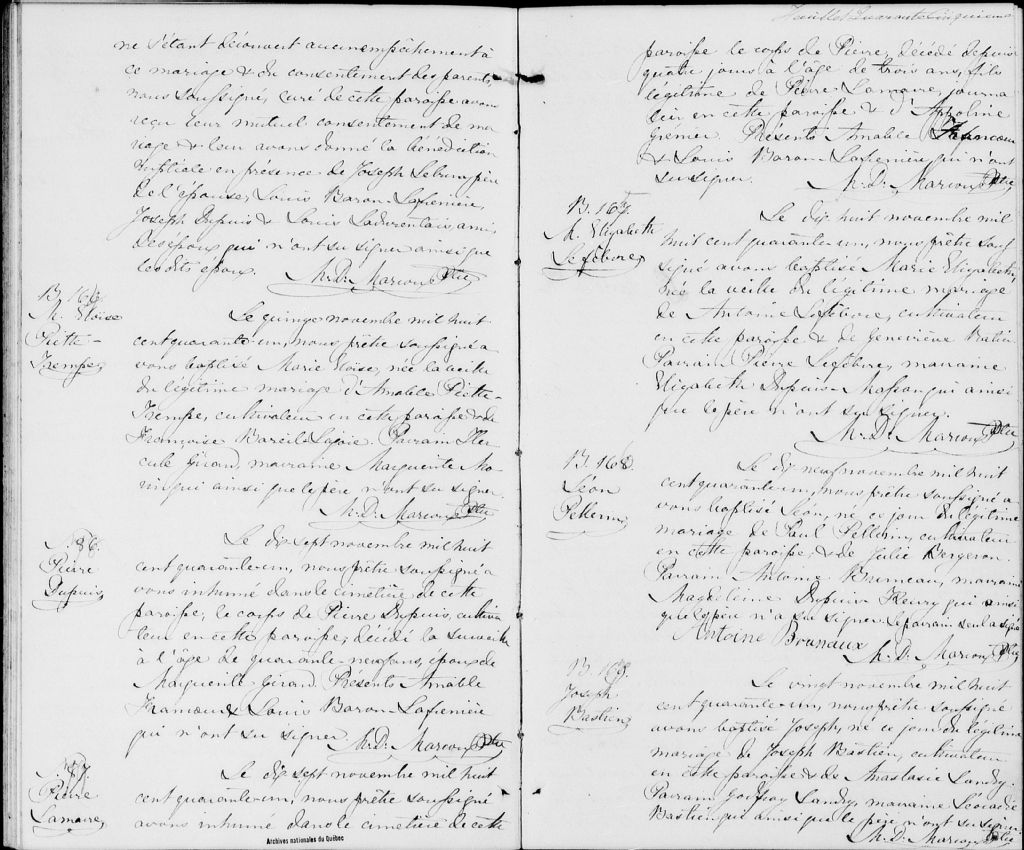 ne s'étant découvert aucun empêchement à
ce mariage & du consentement des parents,
nous soussigné, curé de cette paroisse avons
reçu leur mutuel consentement de ma
riage & leur avons donné la bénédiction
nuptiale en présence de Joseph Lebrun père
de l'épouse, Louis Baron-Lafrenière,
Joseph Dupuis & Louis amis
des époux qui n'ont su signer ainsi que
les dits époux. M.D. Marcoux Ptre
B. 166.
M. Eloise
Piette-
Trempe
Le quinze novembre mil huit
cent quarante-un, nous prêtre soussigné a
vons baptisé Marie Eloise, née la veille
du légitime mariage d'Amable Piette-
Trempe, cultivateur en cette paroisse & de
Françoise Bareil-Lajoie. Parrain Her
cule Girard, marraine Marguerite Mo
rin qui ainsi que le père n'ont su signer.
M.D. Marcoux Ptre
S. 86.
Pierre
Dupuis
Le dix sept novembre mil huit
cent quarante-un, nous prêtre soussigné a
vons inhumé dans le cimetière de cette
paroisse, le corps de Pierre Dupuis, cultiva
teur en cette paroisse, décédé la surveille
à l'âge de quarante-neuf ans, époux de
Marguerite Girard. Présents Amable
Francoeur & Louis Baron-Lafrenière
qui n'ont su signer. M.D. Marcoux Ptre
S. 87.
Pierre
Lamaire
Le dix sept novembre mil huit
cent quarante-un, nous prêtre soussigné
avons inhumé dans le cimetière de cette
Archives nationales du Québec
Feuillet Quarante Cinquième
paroisse le corps de Pierre, décédé depuis
quatre jours à l'âge de trois ans, fils
légitime de Pierre Lamaire, journa
lier en cette paroisse & d'Appoline
Grenier. Présents Amable Francoeur
& Louis Baron-Lafrenière qui n'ont
su signer. M.D. Marcoux Ptre
B. 167.
M. Elizabeth
Lefebvre
Le dix huit novembre mil
huit cent quarante-un, nous prêtre sous
signé avons baptisé Marie Elizabeth,
née la veille du légitime mariage
de Antoine Lefebvre, cultivateur
en cette paroisse & de Geneviève
Parrain Pierre Lefebvre, marraine
Elizabeth Dupuis qui ainsi
que le père n'ont su signer.
M.D. Marcoux Ptre
B. 168.
Léon
Pellerin
Le dix neuf novembre mil huit
cent quarante-un, nous prêtre soussigné a
vons baptisé Léon, né ce jour du légitime
mariage de Paul Pellerin, cultivateur
en cette paroisse, & de Julie Bergeron.
Parrain Antoine Bruneau, marraine
Magdeleine Dupuis Fleury qui ainsi
que le père n'a su signer. Le parrain seul a signé
Antoine Brunaux
M.D. Marcoux Ptre
B. 169.
Joseph
Bastien
Le vingt novembre mil huit
cent quarante-un, nous prêtre soussigné
avons baptisé Joseph, né ce jour du légitime
mariage de Joseph Bastien, cultivateur
en cette paroisse & de Anastasie Landry.
Parrain Godfroy Landry, marraine Léocadie
Bastien qui ainsi que le père n'ont su signer.
M.D. Marcoux Ptre